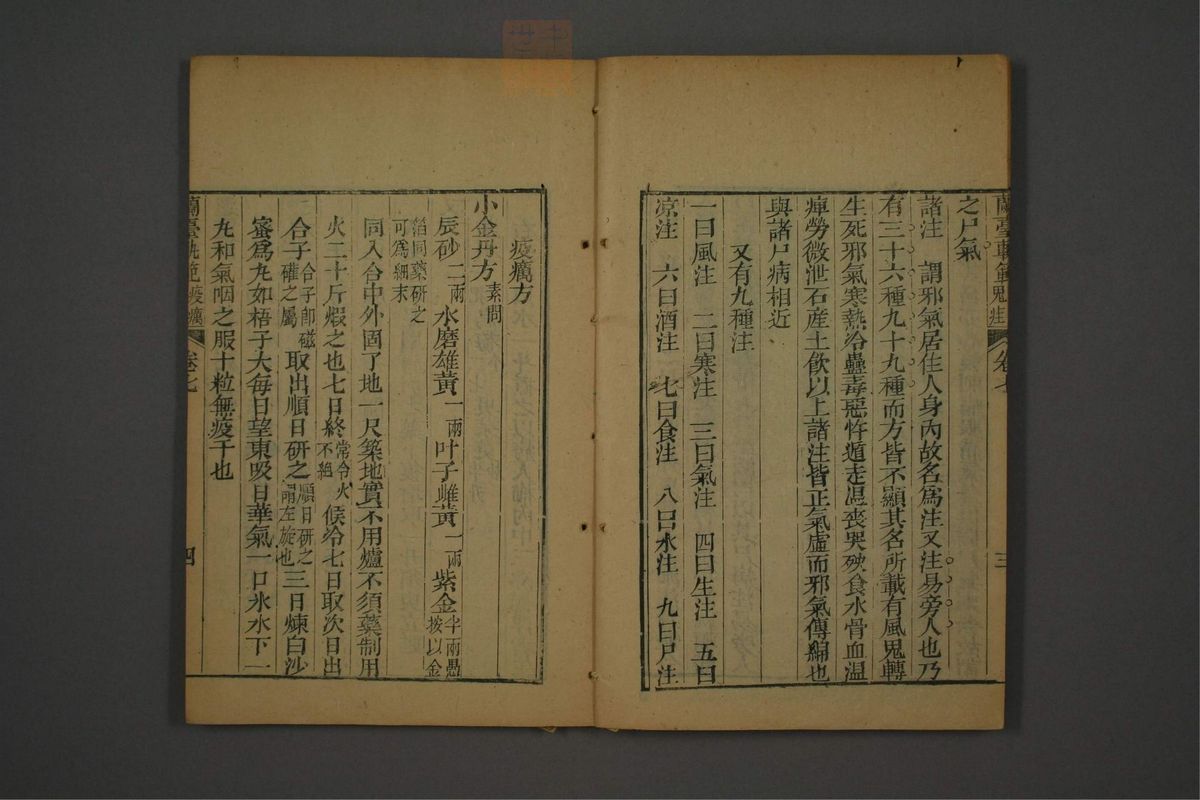 蘭臺軌範鬼疰 卷七 三
之尸氣
諸注 謂邪氣居住人身內故名爲注又注易旁人也乃
有三十六種九十九種而方皆不顯其名所載有風鬼轉
生死邪氣寒熱冷蠱毒惡忤遁走溫喪哭殃食水骨血溫
痺勞微泄石產土飲以上諸注皆正氣虛而邪氣傳綿也
與諸尸病相近
又有九種注
一曰風注 二曰寒注 三曰氣注 四曰生注 五曰
凉注 六曰酒注 七曰食注 八曰水注 九曰尸注
疫癘方
小金丹方 素問
辰砂 二兩 水磨雄黃 一兩 叶子雌黃 一兩 紫金 半兩愚按以金
箔同藥研之可爲細末
同入合中外固了地一尺築地實不用爐不須藥制用
火二十斤煅之也七日終 常令火不絕 候冷七日取次日出
合子 合子卽磁礶之屬 取出順日研之 順日研之謂左旋也 三日煉白沙
蜜爲丸如梧子大每日望東吸日華氣一口氷水下一
丸和氣咽之服十粒無疫干也
蘭臺軌範疫癘 卷七 四